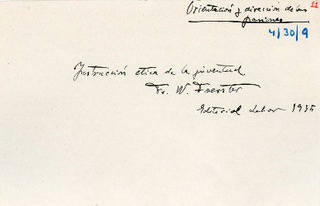 Orientación y dirección de las 11
pasiones
4/30/9
Instrucción ética de la juventud
Fr. W. Foerster
Editorial Labor 1935